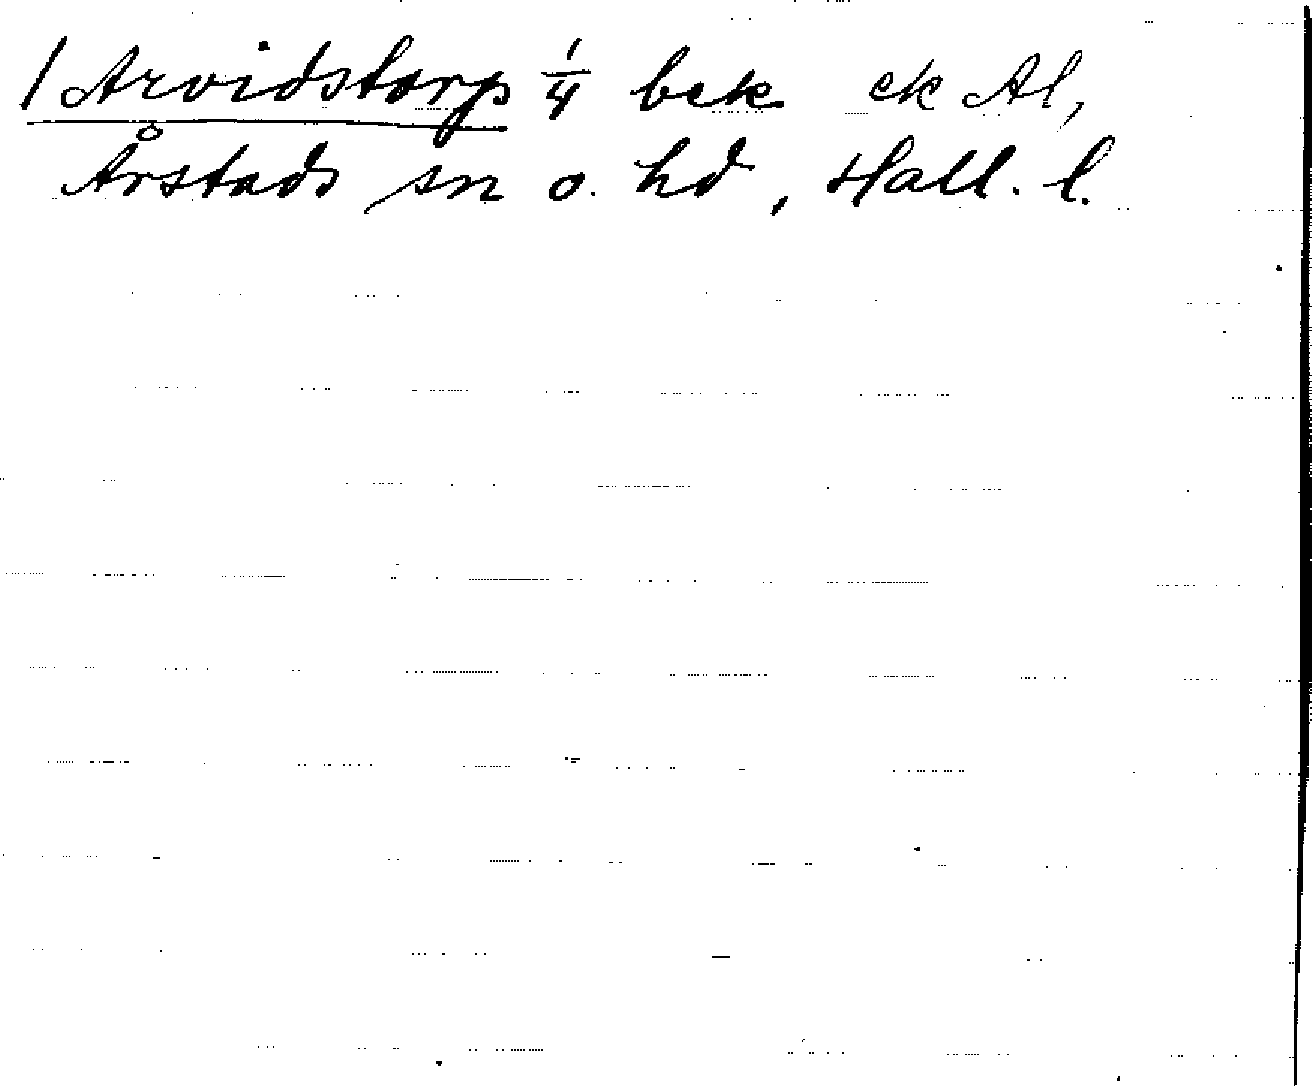 / Arvidstorp 1/4 bek ck Al,
Årstads sn o. hd, Hall. l.